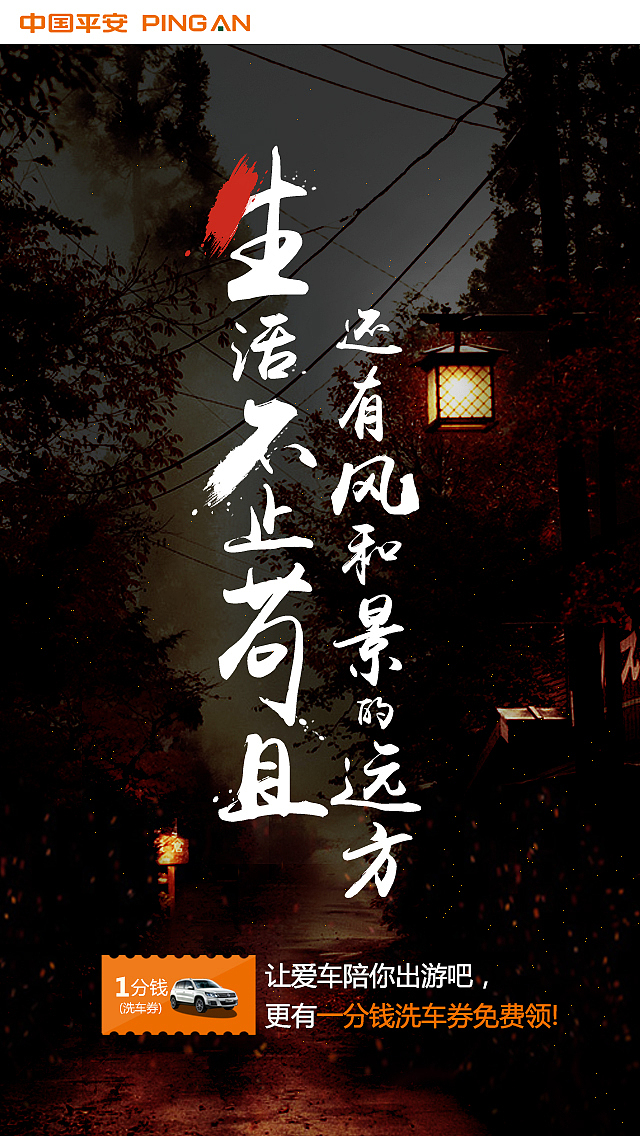 中国平安 PING AN
生活不止苟且
还有风和景的远方
1分钱
(洗车券)
让爱车陪你出游吧，
更有一分钱洗车券免费领!